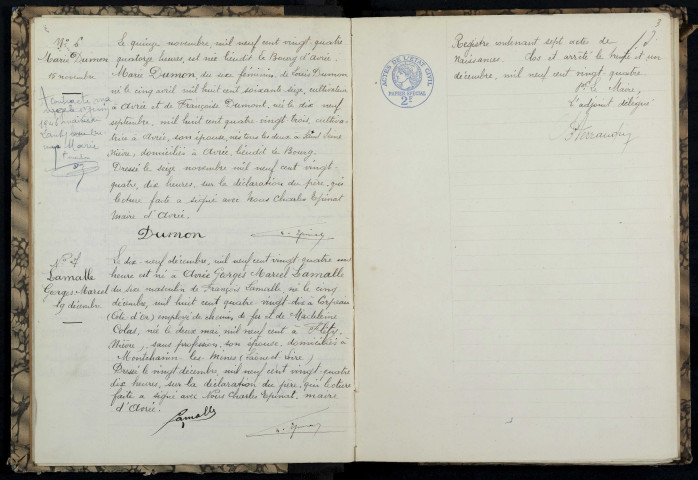 N° 6
Marie Dumon
15 novembre
Le quinze novembre, mil neuf cent vingt-quatre
quatorze heures, est née lieudit le Bourg d'Avrée
Marie Dumon, du sexe féminin, de Louis Dumon
né le cinq avril mil huit cent soixante seize, cultivateur
à Avrée et de Françoise Dumont, née le dix neuf
septembre, mil huit cent quatre vingt trois, cultiva-
trice à Avrée, son épouse, nés tous les deux à
Nièvre, domiciliés à Avrée, lieudit le Bourg.
Dressé le seize novembre mil neuf cent vingt-
quatre, dix heures, sur la déclaration du père, qui
lecture faite a signé avec nous Charles Epinat
maire d'Avrée.
Dumon
N° 7
Lamalle
Georges-Marcel
19 décembre
Le dix neuf décembre, mil neuf cent vingt quatre une
heure est né à Avrée Georges Marcel Lamalle
du sexe masculin de François Lamalle, né le cinq
décembre, mil huit cent quatre-vingt-dix à Corpeau
(Côte d'Or) employé de chemin de fer et de Madeleine
Colas, née le deux mai, mil neuf cent à Flety
Nièvre, sans profession, son épouse, domiciliés à
Montchanin les Mines (Saône et Loire)
Dressé le vingt décembre, mil neuf cent vingt-quatre
dix heures, sur la déclaration du père, qui lecture
faite a signé avec Nous Charles Epinat, maire
d'Avrée.
Lamalle
3
Registre contenant sept actes de
naissances. Clos et arrêté le trente et un
décembre, mil neuf cent vingt quatre
Pr le Maire,
L'adjoint délégué
ACTES DE L'ETAT CIVIL
PAPIER SPECIAL
2F